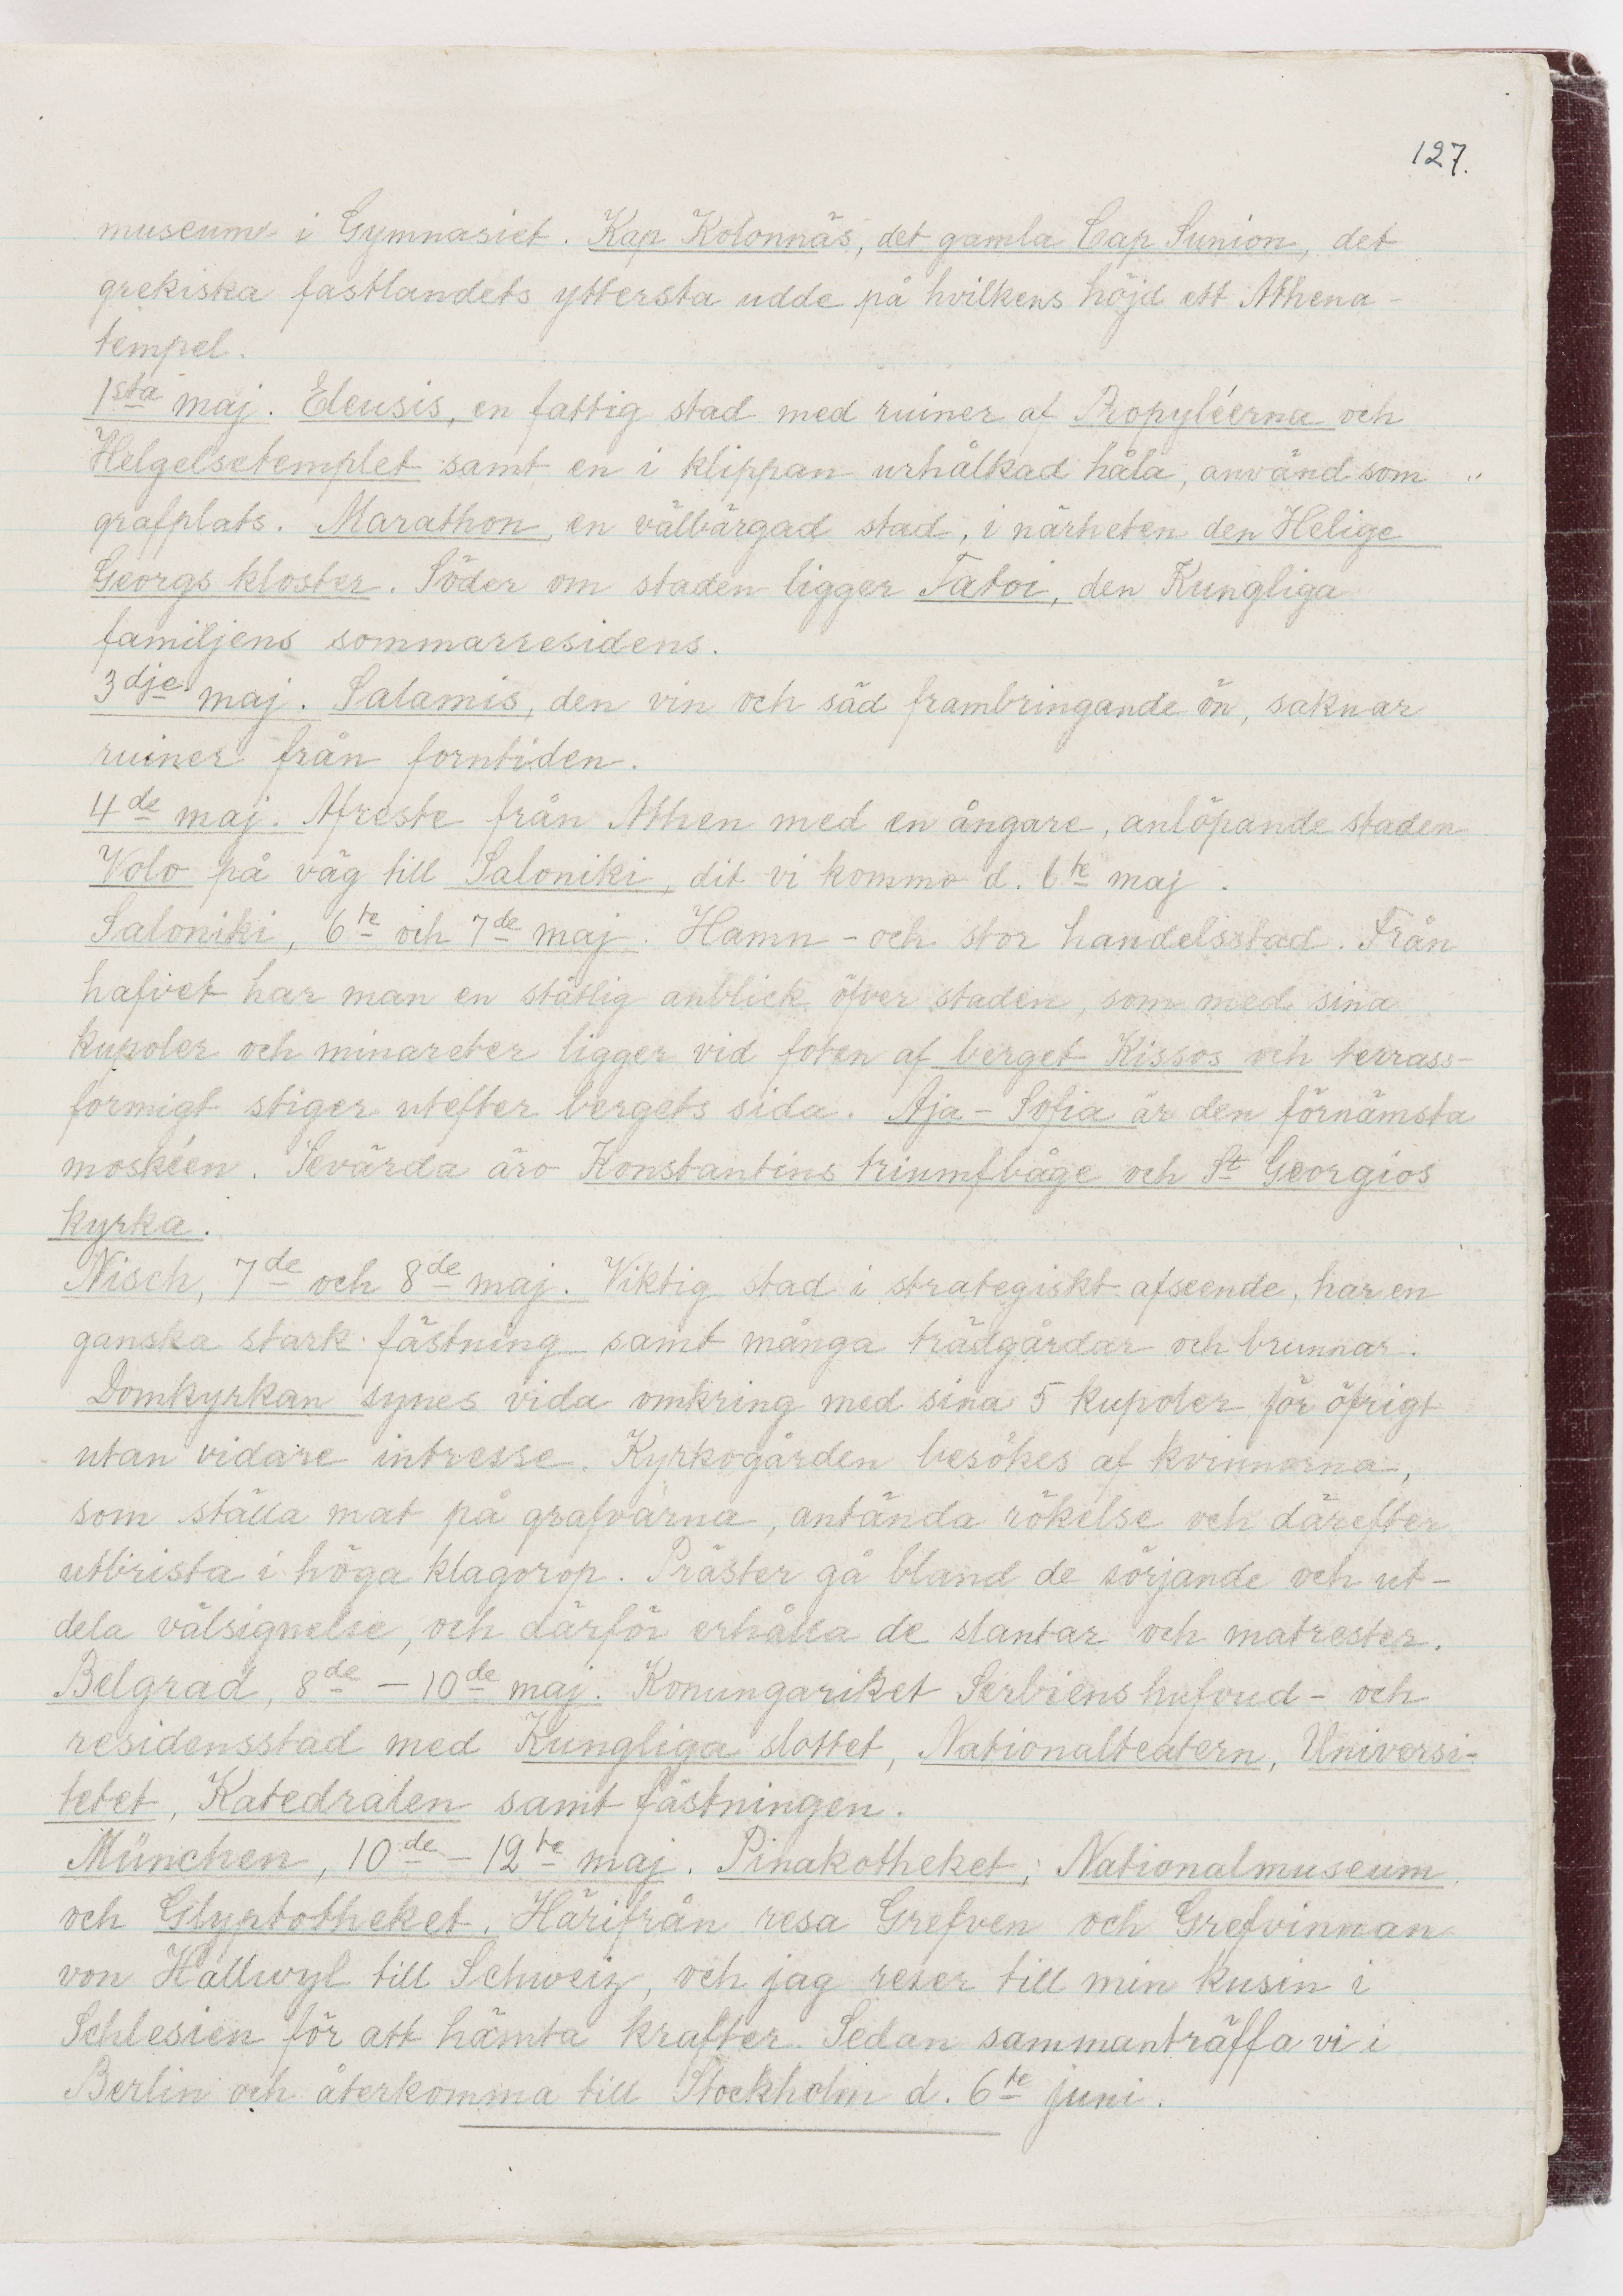 127.
museum i Gymnasiet. Kap Kolonnäs, det gamla Cap Sunion, det
grekiska fastlandets yttersta udde på hvilkens höjd ett Athena-
tempel.
1sta maj. Eleusis, en fattig stad med ruiner af Propyléerna och
Helgelsetemplet samt en i klippan urhålkad håla, använd som
grafplats. Marathon, en välbärgad stad, i närheten den Helige
Georgs kloster. Söder om staden ligger Tatoi, den Kungliga
familjens sommarresidens.
3dje maj. Salamis, den vin och säd frambringande ön, saknar
ruiner från forntiden.
4de maj. Afreste från Athen med en ångare, anlöpande staden
Volo på väg till Saloniki, dit vi kommo d. 6te maj.
Saloniki, 6te och 7de maj. Hamn- och stor handelsstad. Från
hafvet har man en ståtlig anblick öfver staden, som med sina
kupoler och minareter ligger vid foten af berget Kissos och terrass-
formigt stiger utefter bergets sida. Aja-Sofia är den förnämsta
moskéen. Sevärda äro Konstantins triumfbåge och St Georgios
kyrka.
Nisch, 7de och 8de maj. Viktig stad i strategiskt afseende, har en
ganska stark fästning samt många trädgårdar och brunnar.
Domkyrkan synes vida omkring med sina 5 kupoler för öfrigt
utan vidare intresse. Kyrkogården besökes af kvinnorna,
som ställa mat på grafvarna, antända rökelse och därefter
utbrista i höga klagorop. Präster gå bland de sörjande och ut-
dela välsignelse, och därför erhålla de slantar och matrester.
Belgrad, 8de - 10de maj. Konungariket Serbiens hufvud- och
residensstad med Kungliga slottet, Nationalteatern, Universi-
tetet, Katedralen samt fästningen.
München, 10de - 12te maj. Pinakotheket, Nationalmuseum
och Glyptotheket. Härifrån resa Grefven och Grefvinnan
von Hallwyl till Schweiz, och jag reser till min kusin i
Schlesien för att hämta krafter. Sedan sammanträffa vi i
Berlin och återkomma till Stockholm d. 6te juni.